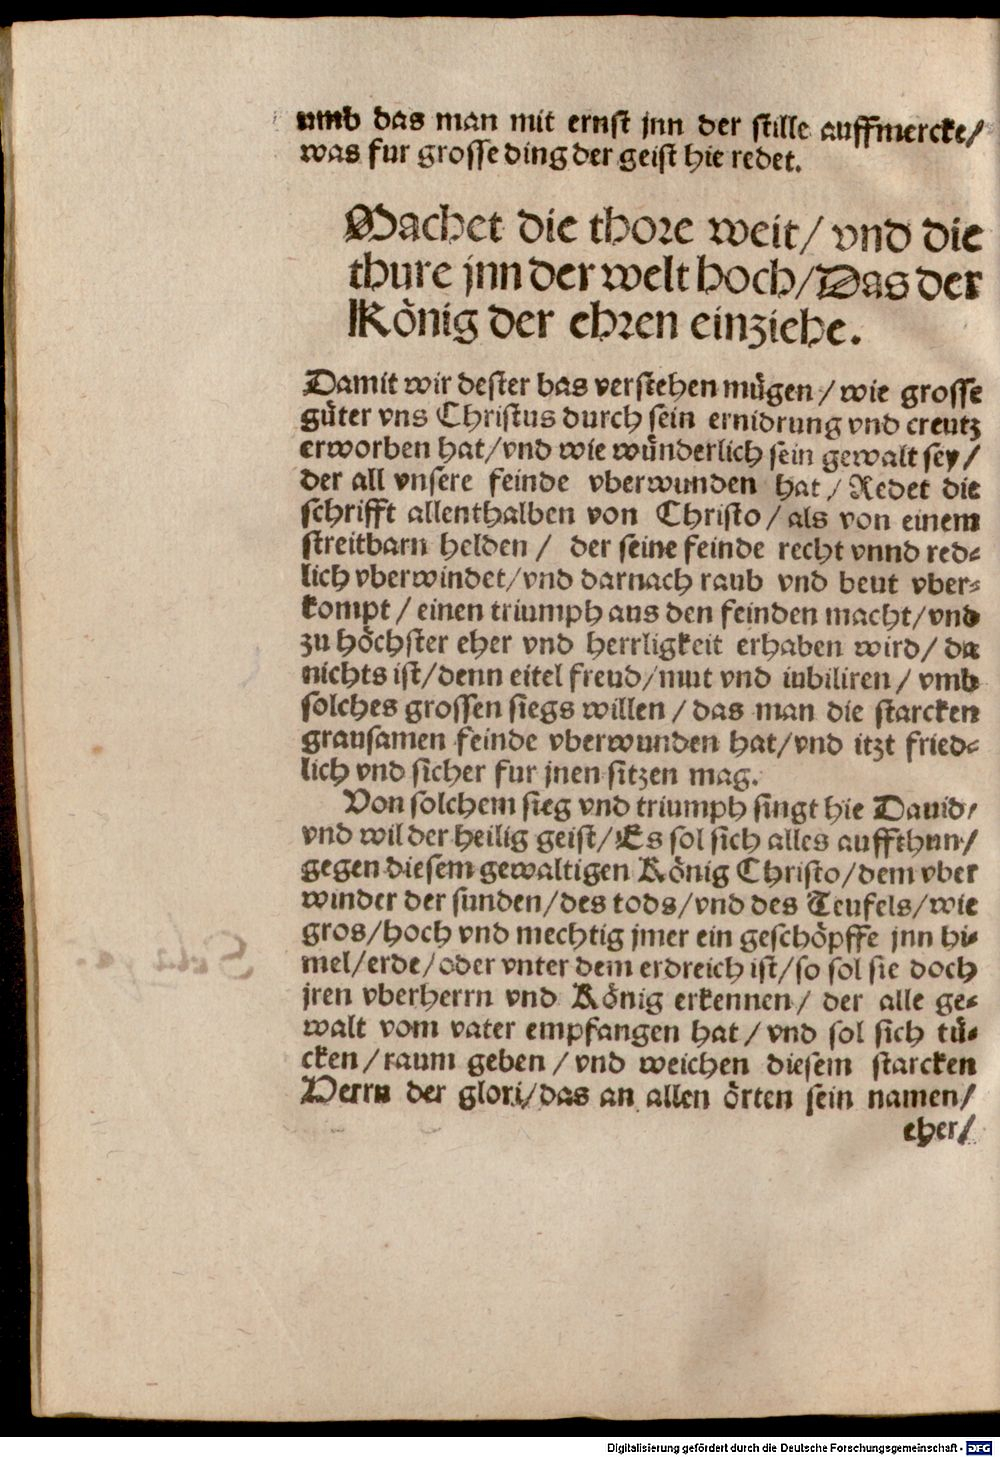 vmb das man mit ernst jnn der stille auffmercke/
was fur grosse ding der geist hie redet.
Machet die thore weit/ vnd die
thure jnn der welt hoch/Das der
König der ehren einziehe.
Damit wir dester bas verstehen mügen/ wie grosse
güter vns Christus durch sein ernidrung vnd creutz
erworben hat/vnd wie wünderlich sein gewalt sey/
der all vnsere feinde vberwunden hat/ Redet die
schrifft allenthalben von Christo/ als von einem
streitbarn helden/ der seine feinde recht vnnd red-
lich vberwindet/vnd darnach raub vnd beut vber-
kompt/ einen triumph aus den feinden macht/vnd
zu höchster eher vnd herrligkeit erhaben wird/ da
nichts ist/denn eitel freud/mut vnd iubiliren/ vmb
solches grossen siegs willen/ das man die starcken
grausamen feinde vberwunden hat/vnd itzt fried-
lich vnd sicher fur jnen sitzen mag.
Von solchem sieg vnd triumph singt hie Dauid/
vnd wil der heilig geist/Es sol sich alles auffthun/
gegen diesem gewaltigen König Christo/dem vber
winder der sunden/des tods/vnd des Teufels/wie
gros/hoch vnd mechtig jmer ein geschöpffe jnn hi-
mel/erde/oder vnter dem erdreich ist/so sol sie doch
jren vberherrn vnd König erkennen/ der alle ge-
walt vom vater empfangen hat/ vnd sol sich tü-
cken/raum geben/vnd weichen diesem starcken
Herrn der glori/das an allen örten sein namen/
eher/
Digitalisierung gefördert durch die Deutsche Forschungsgemeinschaft - DFG